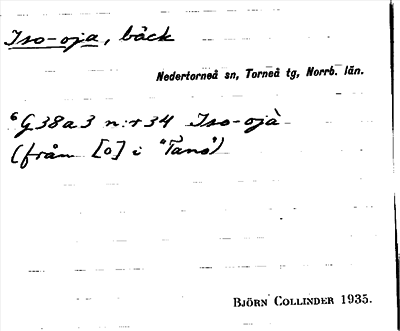 Iso-oja, bäck
Nedertorneå sn, Torneå tg, Norrb. län.
G38a3 n:r 34 Iso-ojà
(från [o] i "Tano")
BJÖRN COLLINDER 1935.